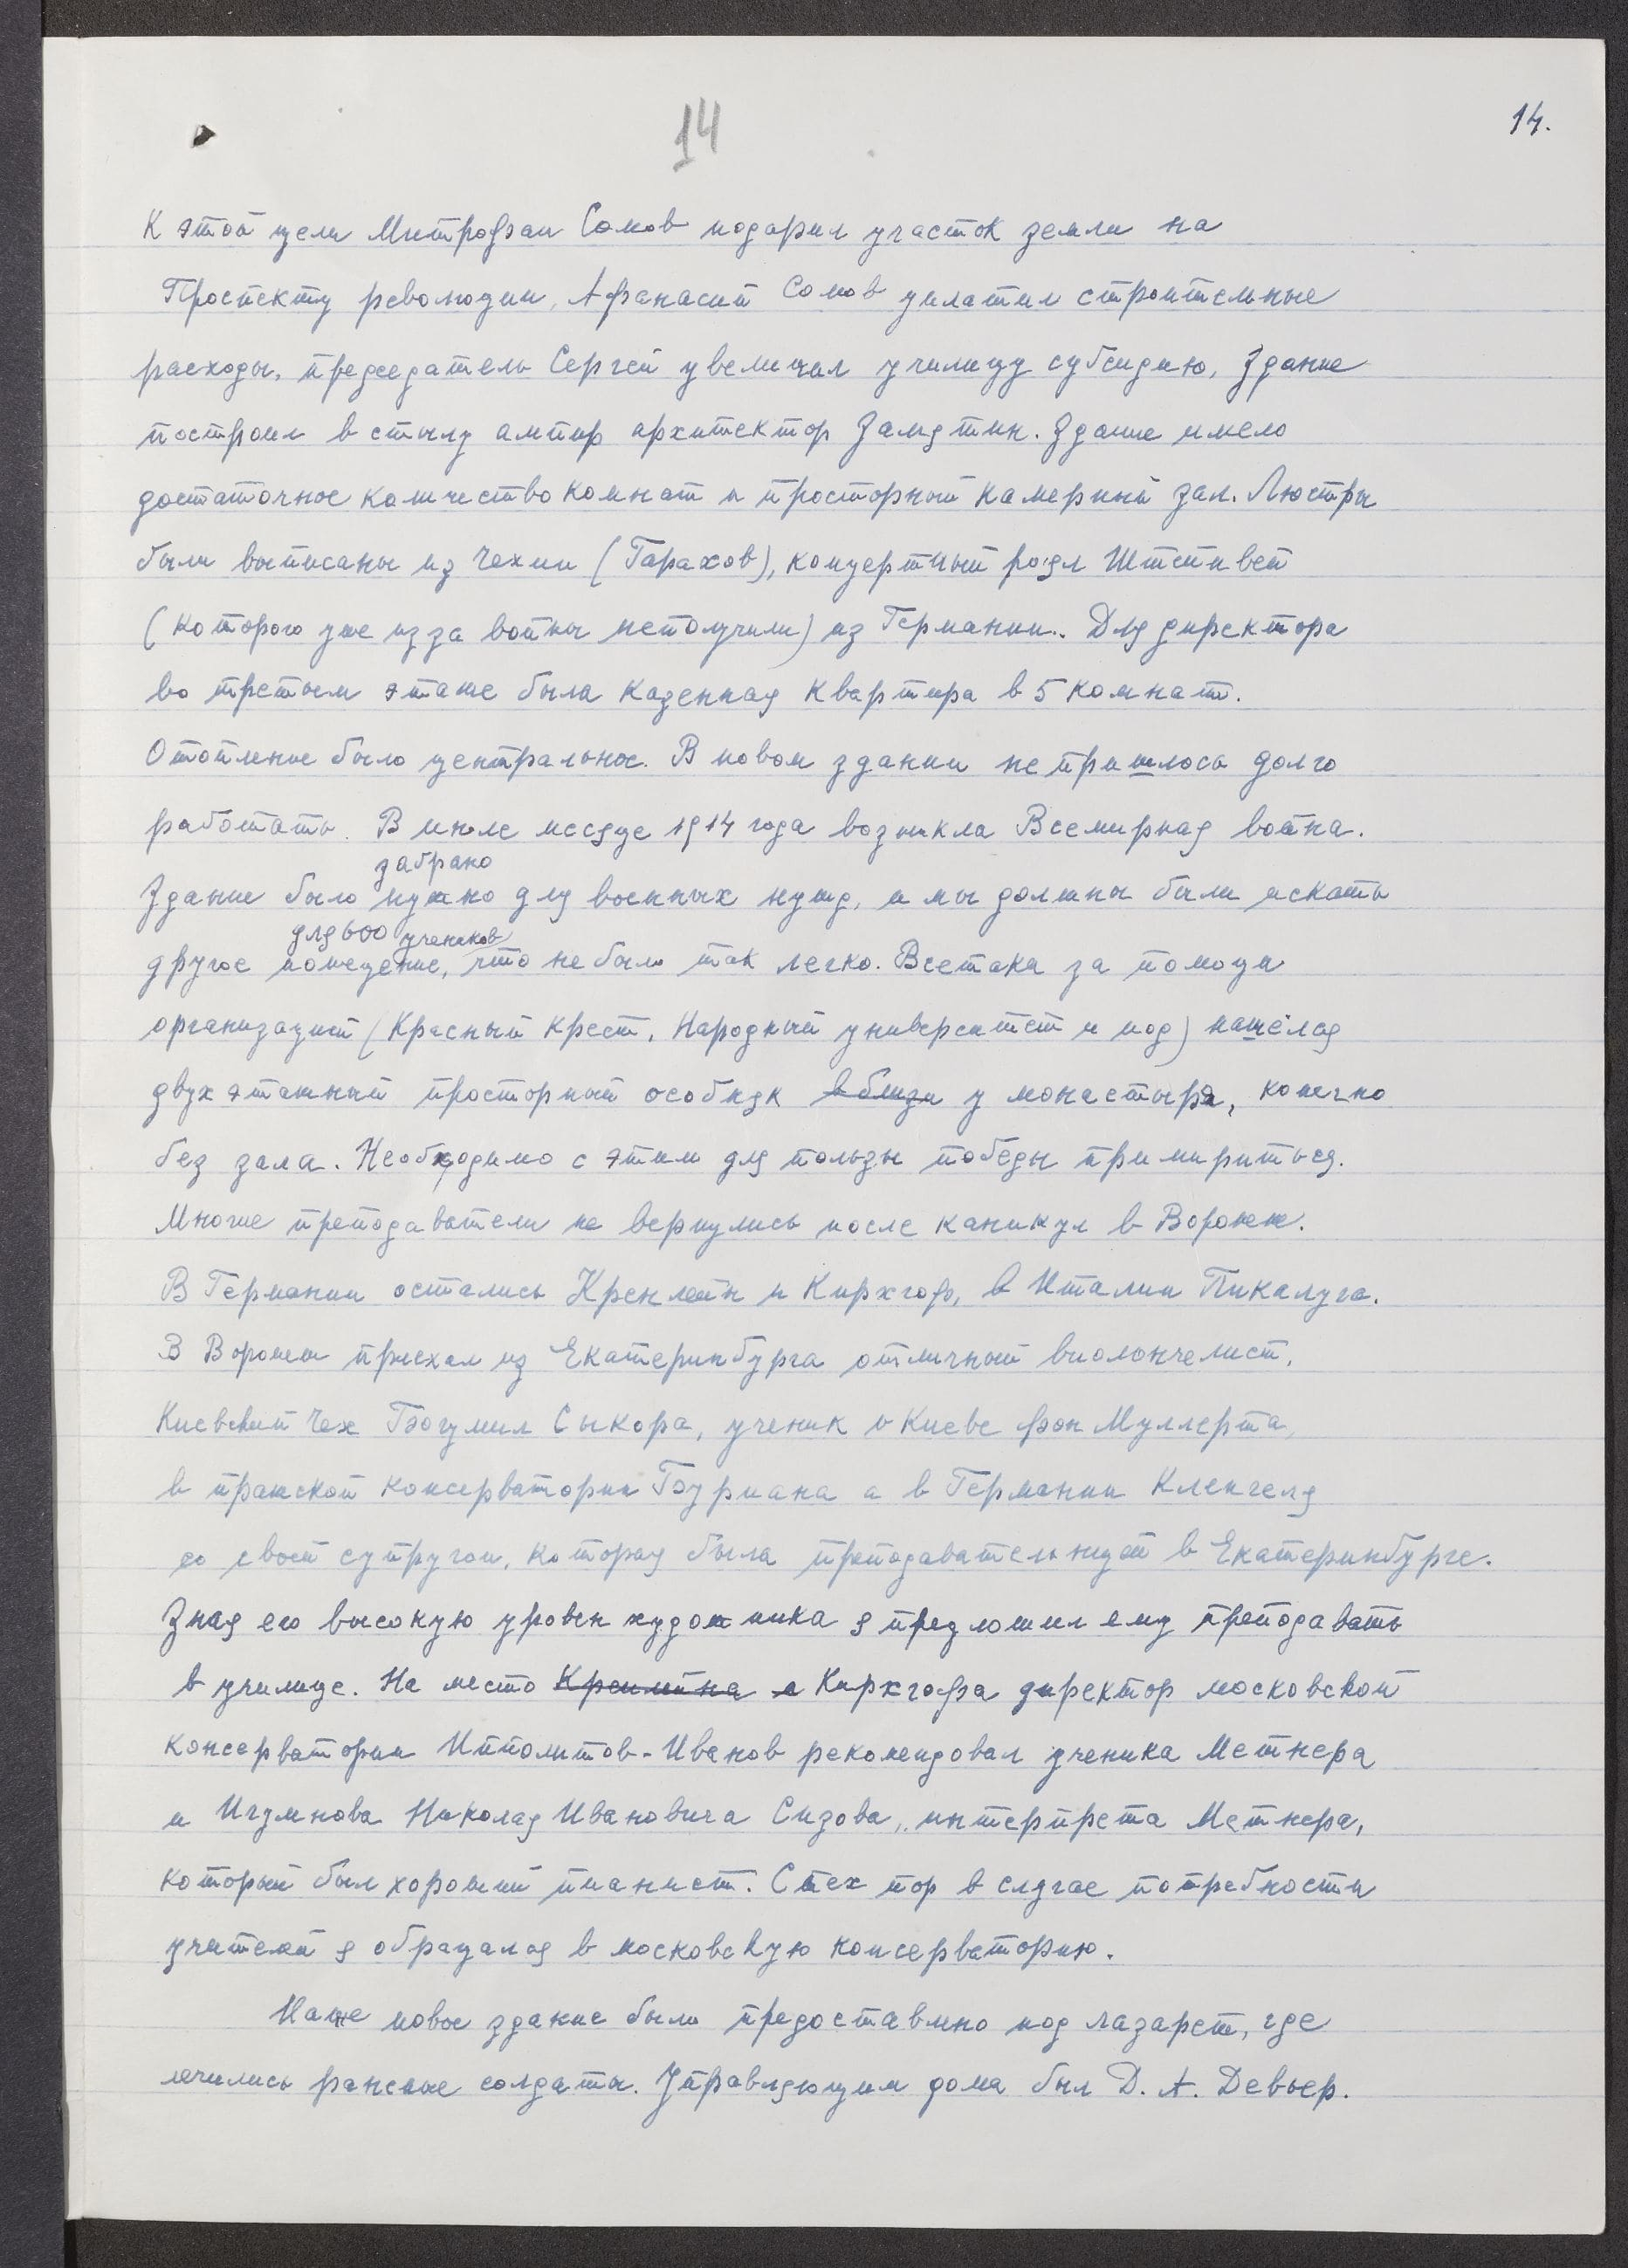 14
14.
К этой цели Митрофан Сомов подарил участок земли на
Проспекту революции, Афанасий Сомов уплатил строительные
расходы, председатель Сергей увеличил училищу субсидию, Здание
построил в стилу ампир архитектор Замятин. Здание имело
достаточное количество комнат и просторный камерный зал. Люстры
были выписаны из Чехии (Гарахов), концертный роял Штейнвей
(которого уже из за войны неполучили) из Германии.. Для директора
во третьем этаже была казенная квартира в 5 комнат.
Отопление было центральное. В новом здании не пришлось долго
работать. В июле месяце 1914 года возникла Всемирная война.
забрано
Здание было нужно для военных нужд, и мы должны были искать
для 600 учеников
другое помещение, что не было так легко. Всетаки за помощи
организаций (Красный крест, Народный университет и под) нашёлся
двухэтажный просторный особняк вблизи у монастыря, конечно
без зала. Необходимо с этим для пользы победы примириться.
Многие преподаватели не вернулись после каникул в Воронеж.
В Германии остались Кренлейн и Кирхгоф, в Италии Пикалуга.
В Воронеж приехал из Екатеринбурга отличный виолончелист,
Киевский Чех Богумил Сыкора, ученик в Киеве фон Муллерта,
в пражской консерватории Буриана а в Германии Кленгеля
со своей супругой, которая была преподавательницей в Екатеринбурге.
Зная его высокую уровен художника я предложил ему преподавать
в училище. На место Кренлейна и Кирхгофа директор московской
консерватории Ипполитов-Иванов рекомендовал ученика Метнера
и Игумнова Николая Ивановича Сизова, интерпрета Метнера,
который был хороший пианист. С тех пор в случае потребности
учителей я обращался в московскую консерваторию.
Наше новое здание было предоставлено под лазарет, где
лечились раненые солдаты. Управляющим дома был Д. А. Девьер.